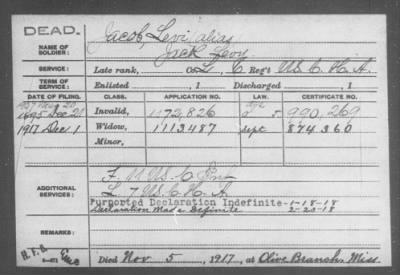 DEAD.
NAME OF SOLDIER: Jacob, Levi, alias
Jack Levy
SERVICE: Late rank, Co. L, 6 Reg't U.S.C.H.A.
TERM OF SERVICE: Enlisted , 1 Discharged , 1
DATE OF FILING. CLASS. APPLICATION NO. LAW. CERTIFICATE NO.
1895 Dec 21 Invalid, 1172,826 990,269
1917 Dec 1 Widow, 1113487 Sept 874360
Minor,
ADDITIONAL SERVICES: F 11 U.S.C. Inf
L 7 U.S.C.H.A
Purported Declaration Indefinite-1-18-18
Declaration Made Definite 2-23-18
REMARKS:
Died Nov 5, 1917, at Olive Branch, Miss.